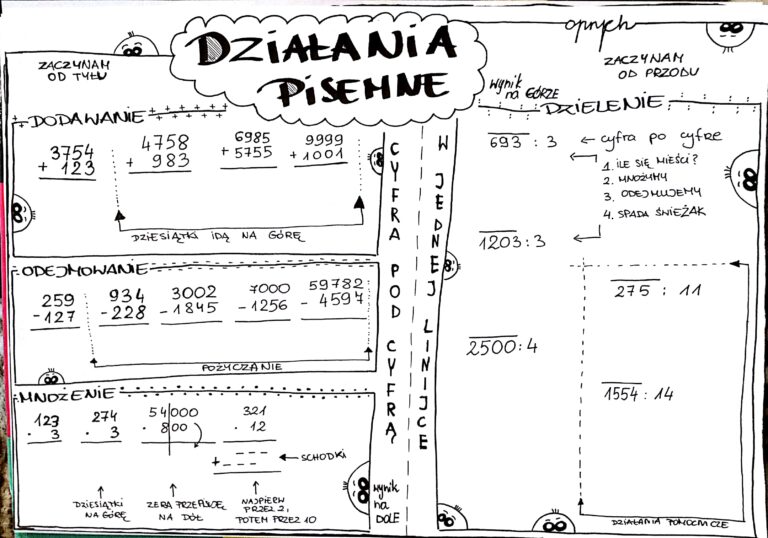 DZIAŁANIA
PISEMNE
ZACZYNAM
OD TYŁU
DODAWANIE
3754
+ 123
4758
+ 983
6985
+ 5755
9999
+ 1001
DZIESIĄTKI IDĄ NA GÓRĘ
ODEJMOWANIE
259
- 127
934
- 228
3002
- 1845
7000
- 1256
59782
- 4597
POŻYCZANIE
MNOŻENIE
123
· 3
274
· 3
54000
· 800
321
· 12
+
SCHODKI
DZIESIĄTKI
NA GÓRĘ
ZERA PRZEPISZĘ
NA DÓŁ
NAJPIERW
PRZEZ 2,
POTEM PRZEZ 10
CYFRA POD CYFRĄ
wynik
na
DOLE
W JEDNEJ LINIJCE
wynik
na GÓRZE
ZACZYNAM
OD PRZODU
DZIELENIE
693 : 3
← cyfra po cyfrze
1. ILE SIĘ MIEŚCI?
2. MNOŻYMY
3. ODEJMUJEMY
4. SPADA ŚWIEŻAK
1203 : 3
2500 : 4
275 : 11
1554 : 14
DZIAŁANIA POMOCNICZE